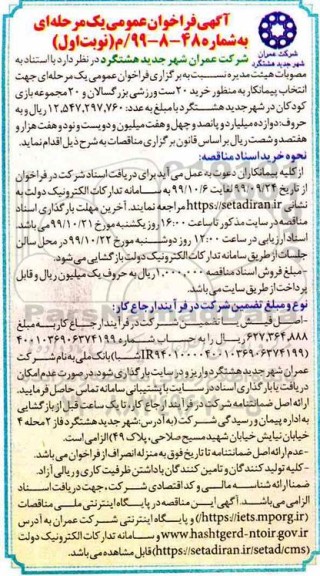 آگهی فراخوان عمومی یک مرحله ای
به شماره ۴۸-۸-۹۹/م (نوبت اول)
شرکت عمران
شهر جدید هشتگرد
شرکت عمران شهر جدید هشتگرد در نظر دارد با استناد به
مصوبات هیئت مدیره نسبت به برگزاری فراخوان عمومی یک مرحله ای جهت
انتخاب پیمانکار به منظور خرید ۲۰ ست ورزشی بزرگسالان و ۲۰ مجموعه بازی
کودکان در شهر جدید هشتگرد با مبلغ به عدد: ۱۲,۵۴۷,۲۹۷,۷۶۰ ریال و به
حروف: دوازده میلیارد و پانصد و چهل و هفت میلیون و دویست و نود و هفت هزار و
هفتصد و شصت ریال بر اساس قانون برگزاری مناقصات به شرح ذیل اقدام نماید.
نحوه خرید اسناد مناقصه:
-از کلیه پیمانکاران دعوت به عمل می آید برای دریافت اسناد شرکت در فراخوان
از تاریخ ۹۹/۰۹/۲۴ لغایت ۹۹/۱۰/۶ به سامانه تدارکات الکترونیک دولت به
نشانی https://setadiran.ir مراجعه نمایند. آخرین مهلت بارگذاری اسناد
مناقصه در سایت مذکور تا ساعت ۱۶:۰۰ روز یکشنبه مورخ ۹۹/۱۰/۲۱ می باشد.
اسناد ارزیابی در ساعت ۱۲:۰۰ روز دوشنبه مورخ ۹۹/۱۰/۲۲ در محل سالن
جلسات از طریق سامانه تدارکات الکترونیک دولت بازگشایی می شود.
-مبلغ فروش اسناد مناقصه ۱,۰۰۰,۰۰۰ ریال به حروف یک میلیون ریال و قابل
پرداخت از طریق سایت می باشد.
نوع و مبلغ تضمین شرکت در فرآیند ارجاع کار:
-اصل فیش یا تضمین شرکت در فرآیند ارجاع کار به مبلغ
۶۲۷,۳۶۴,۸۸۸ ریال را به حساب شماره ۴۰۰۱۰۳۶۹۰۶۳۷۴۱۹۹
شبا) بانک ملی به نام شرکت
عمران شهر جدید هشتگرد واریز و در سایت بارگذاری شود. در صورت عدم امکان
دریافت یا بارگذاری اسناد در سایت با پشتیبانی سامانه تماس حاصل فرمایید.
ارائه اصل ضمانتنامه شرکت در فرآیند ارجاع کار، تا یک ساعت قبل از بازگشایی
به اداره پیمان و رسیدگی شرکت (به آدرس: شهر جدید هشتگرد فاز ۲ محله ۴
خیابان نیایش خیابان شهید مسیح صلاحی، پلاک ۴۹) الزامی است.
-عدم ارائه اصل ضمانتنامه تا تاریخ فوق به منزله انصراف از فراخوان می باشد.
-کلیه تولید کنندگان و تامین کنندگان با داشتن ظرفیت کاری و ریالی آزاد.
ضمنا ارائه شناسه مالی و کد اقتصادی شرکت، جهت دریافت اسناد
الزامی می باشد. آگهی این مناقصه در پایگاه اینترنتی ملی مناقصات
(https://iets.mporg.ir) و پایگاه اینترنتی شرکت عمران به آدرس
www.hashtgerd-ntoir.gov.ir و سامانه تدارکات الکترونیک دولت
(https://setadiran.ir/setad/cms) قابل مشاهده می باشد.